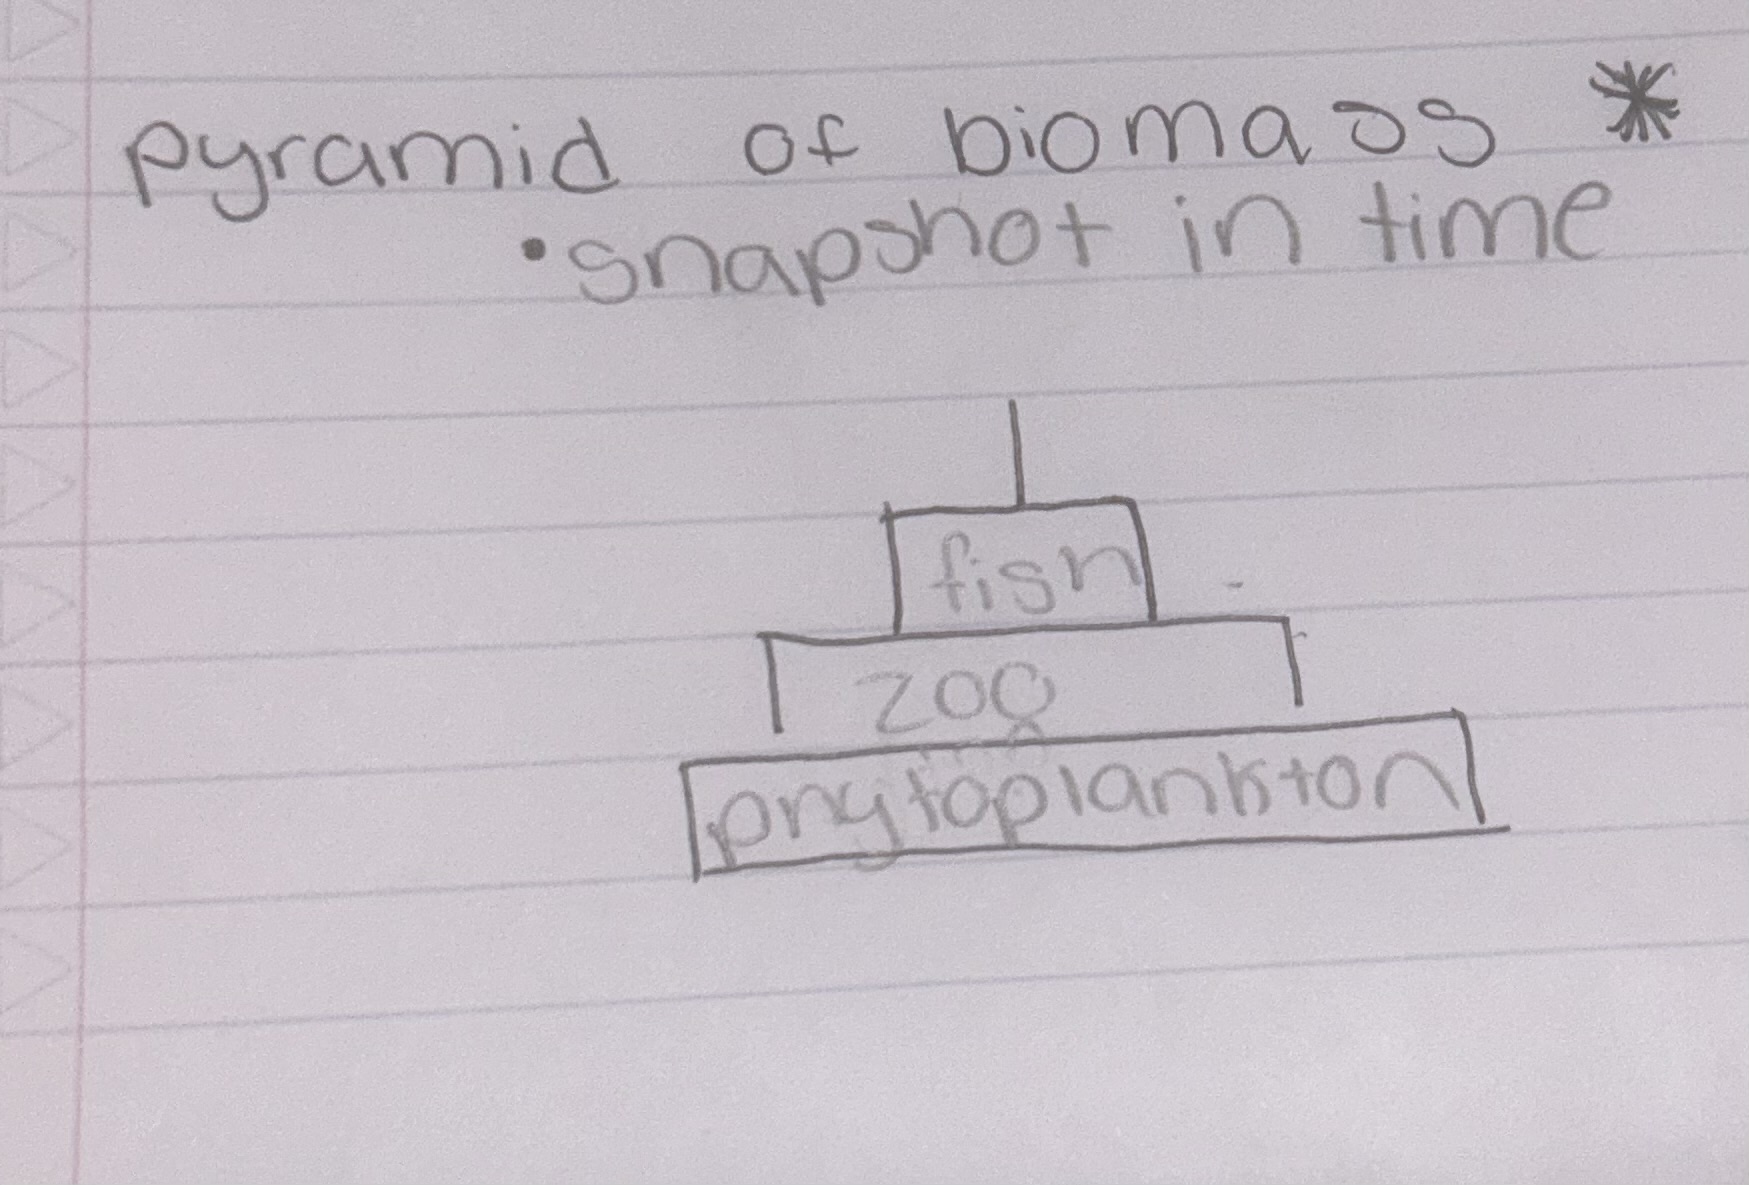 pyramid of biomass *
• snapshot in time
fish
zoo
phytoplankton